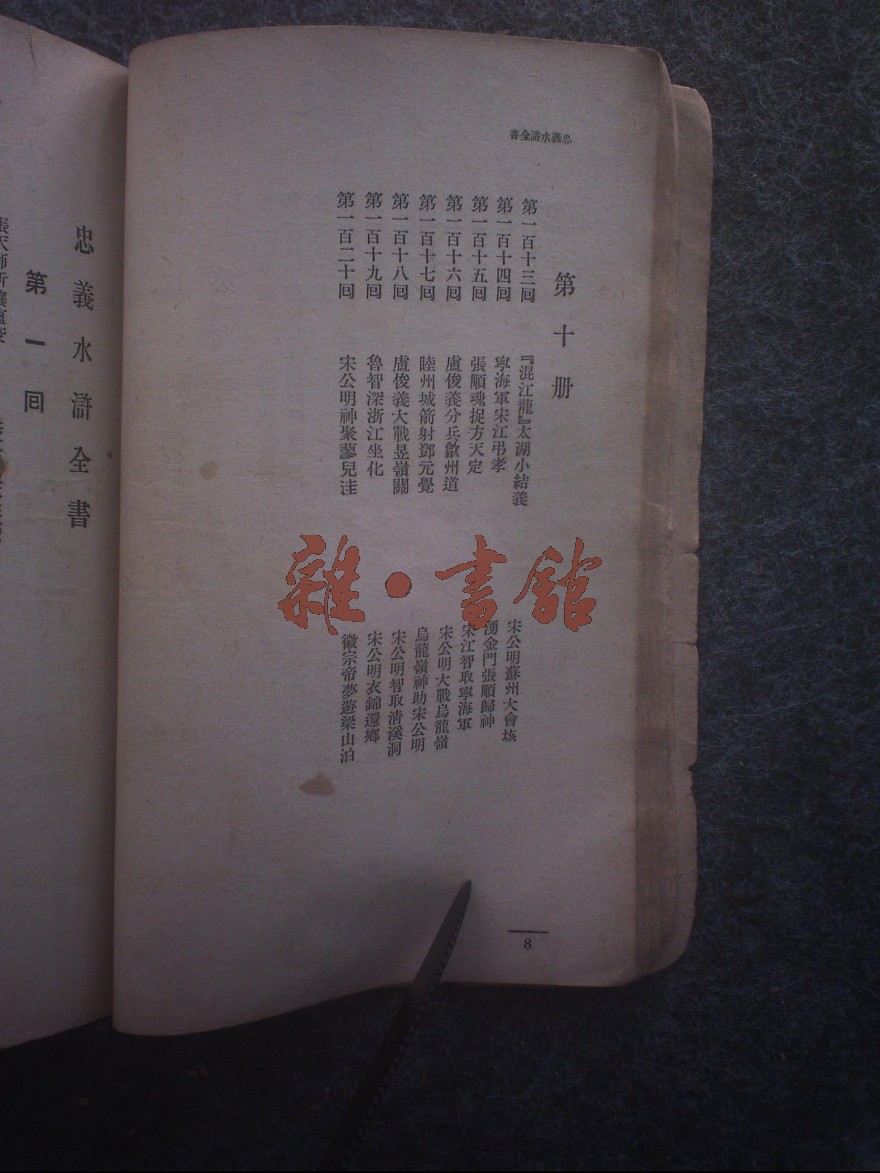 忠義水滸全書
第十册
第一百十三回 『混江龍』太湖小結義 宋公明蘇州大會垓
第一百十四回 寧海軍宋江弔孝 湧金門張順歸神
第一百十五回 張順魂捉方天定 宋江智取寧海軍
第一百十六回 盧俊義分兵歙州道 宋公明大戰烏龍嶺
第一百十七回 睦州城箭射鄧元覺 烏龍嶺神助宋公明
第一百十八回 盧俊義大戰昱嶺關 宋公明智取清溪洞
第一百十九回 魯智深浙江坐化 宋公明衣錦還鄉
第一百二十回 宋公明神聚蓼兒洼 徽宗帝夢遊梁山泊
8
雜·書館
忠義水滸全書
第一回
張天師祈禳瘟疫